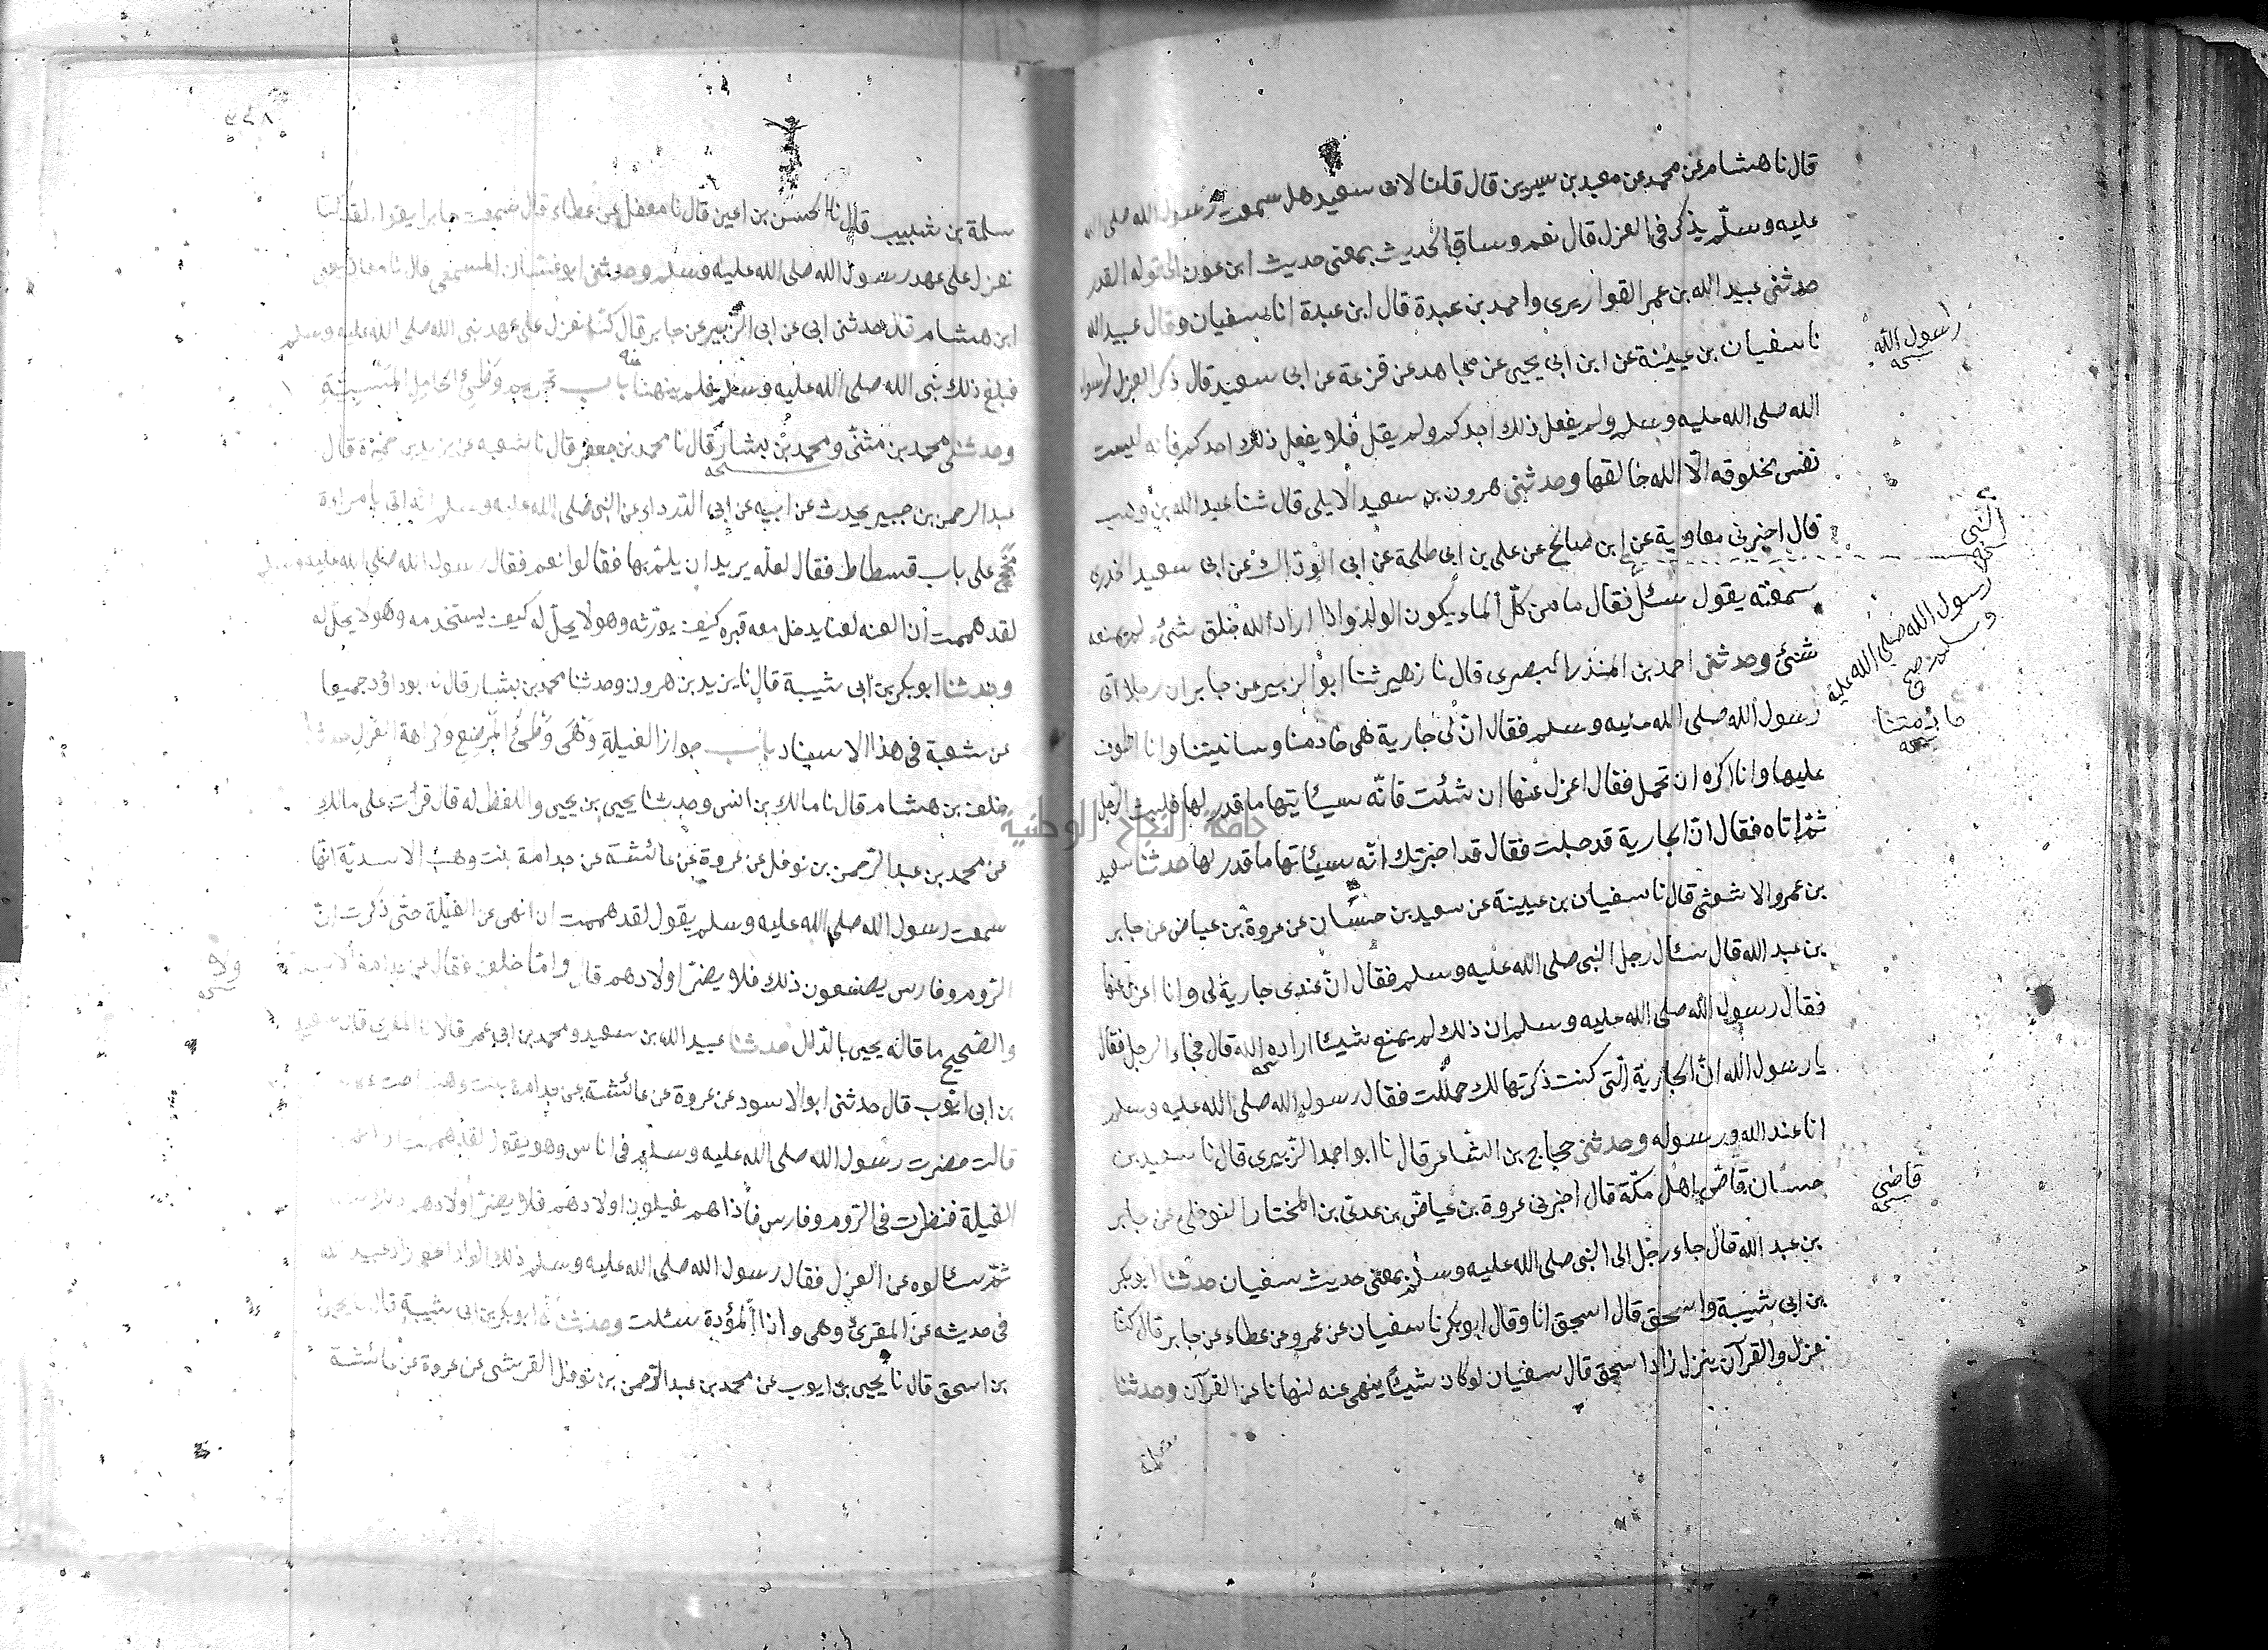 قال نا هشام عن محمد عن معبد بن سيرين قال قلنا لابى سعيد هل سمعت رسول الله صلى الله
عليه وسلم يذكر فى العزل قال نعم وساق الحديث بمعنى حديث ابن عون الى قوله القدر
حدثنى عبيد الله بن عمر القواريرى واحمد بن عبدة قال ابن عبدة انا سفيان وقال عبيد الله
نا سفيان بن عيينة عن ابن ابى يحيى عن مجاهد عن قزعة عن ابى سعيد قال ذكر العزل لرسول
الله صلى الله عليه وسلم ولم يفعل ذلك احدكم ولم يقل فلا يفعل ذلك احدكم فانه ليست
نفس مخلوقه الّا الله خالقها وحدثنى هرون بن سعيد الايلى قال ثنا عبد الله بن وهب
قال اخبرنى معاوية عن ابن صالح عن على بن ابى طلحة عن ابى الودّاك عن ابى سعيد الخدرى
سمعته يقول سئل فقال ما من كلّ الماء يكون الولد واذا اراد الله خلق شئ لم يمنعه
شئ وحدثنى احمد بن المنذر البصرى قال نا زهير ثنا ابو الزبير عن جابر ان رجلا اتى
رسول الله صلى الله عليه وسلم فقال انّ لى جارية هى خادمنا وسانيتنا وانا اطوف
عليها وانا اكره ان تحمل فقال اعزل عنها ان شئت فانّه سيئاتيها ما قدر لها فلبث الرّجل
ثمّ اتاه فقال انّ الجارية قد حبلت فقال قد اخبرتك انّه سيئاتها ما قدر لها حدثنا سعيد
بن عمرو الاشعثى قال نا سفيان بن عيينة عن سعيد بن حسّان عن عروة بن عياض عن جابر
بن عبد الله قال سئال رجل النبى صلى الله عليه وسلم فقال انّ عندى جارية لى وانا اعزل عنها
فقال رسول الله صلى الله عليه وسلم ان ذلك لم يمنع شيئا اراده الله قال فجاء الرجل فقال
يا رسول الله انّ الجارية الّتى كنت ذكرتها لك حملت فقال رسول الله صلى الله عليه وسلم
انا عند الله ورسوله وحدثنى حجاج بن الشاعر قال نا ابو احمد الزّبيرى قال نا سعيد بن
حسان قاصّ اهل مكّة قال اخبرنى عروة بن عياض بن عدىّ بن المختار النوفلى عن جابر
بن عبد الله قال جاء رجل الى النبى صلى الله عليه وسلم بمعنى حديث سفيان حدثنا ابو بكر
بن ابى شيبة واسحق قال اسحق انا وقال ابو بكر نا سفيان عن عمرو عن عطاء عن جابر قال كنّا
نعزل والقرآن ينزل زاد اسحق قال سفيان لو كان شيئا ينهى عنه لنهانا عن القرآن وحدثنا
سلمة
رسول الله
نسخه
النبى
نسخه
رسول الله صلى الله عليه
وسلم صح
خادمتنا
نسخه
قاضى
نسخه
سلمة بن شبيب قال نا الحسن بن اعين قال نا معقل عن عطاء قال سمعت جابرا يقول لقد كنّا
نعزل على عهد رسول الله صلى الله عليه وسلم وحدثنى ابو غسّان المسمعى قال نا معاذ يعنى
ابن هشام قال حدثنى ابى عن ابى الزّبير عن جابر قال كنّا نعزل على عهد نبى الله صلى الله عليه وسلم
فبلغ ذلك نبى الله صلى الله عليه وسلم فلم ينهنا عنه باب تحريم وَطْئِ الحامل المَسْبِيَّةِ
وحدثنى محمد بن مثنّى ومحمد بن بشار قال نا محمد بن جعفر قال نا شعبه عن يزيد بن خميرة قال
عبد الرحمن بن جبير يحدث عن ابيه عن ابى الدّرداء عن النبى صلى الله عليه وسلم انّه اتى بامراءة
مجحّ على باب فسطاط فقال لعلّه يريد ان يلمّ بها فقالوا نعم فقال رسول الله صلى الله عليه وسلم
لقد هممت ان العنه لعنا يدخل معه قبره كيف يورّثه وهو لا يحلّ له كيف يستخدمه وهو لا يحلّ له
وحدثنا ابو بكر بن ابى شيبة قال نا يزيد بن هرون وحدثنا محمد بن بشار قال نا ابو داؤد جميعا
عن شعبة فى هذا الاسناد باب جواز الغيلةِ وَهْىَ وَطْئُ المُرْضِعِ وكراهة العزل حدثنا
خلف بن هشام قال نا مالك بن انس وحدثنا يحيى بن يحيى واللفظ له قال قرأت على مالك
عن محمد بن عبد الرّحمن بن نوفل عن عروة عن عائشة عن جدامة بنت وهب الاسديّة انّها
سمعت رسول الله صلى الله عليه وسلم يقول لقد هممت ان انهى عن الغيلة حتّى ذكرت انّ
الرّوم وفارس يصنعون ذلك فلا يضرّ اولادهم قال وامّا خلف فقال عن جذامة الاسديّة
والصّحيح ما قاله يحيى بالدّال حدثنا عبيد الله بن سعيد ومحمد بن ابى عمر قالا نا المقرى قال سعيد
بن ابى ايّوب قال حدثنى ابو الاسود عن عروة عن عائشة عن جدامة بنت وهب اخت عكاشة
قالت حضرت رسول الله صلى الله عليه وسلم فى اناس وهو يقول لقد هممت ان انهى عن
الغيلة فنظرت فى الرّوم وفارس فاذا هم يغيلون اولادهم فلا يضرّ اولادهم ذلك
ثمّ سئالوه عن العزل فقال رسول الله صلى الله عليه وسلم ذلك الواد الخفى زاد عبيد الله
فى حديثه عن المقرئ وهى واذا المؤدة سئلت وحدثنا ابو بكر بن ابى شيبة قال نا يحيى
بن اسحق قال نا يحيى بن ايوب عن محمد بن عبد الرّحمن بن نوفل القرشى عن عروة عن عائشة
ولا
نسخه
جامعة النجاح الوطنية